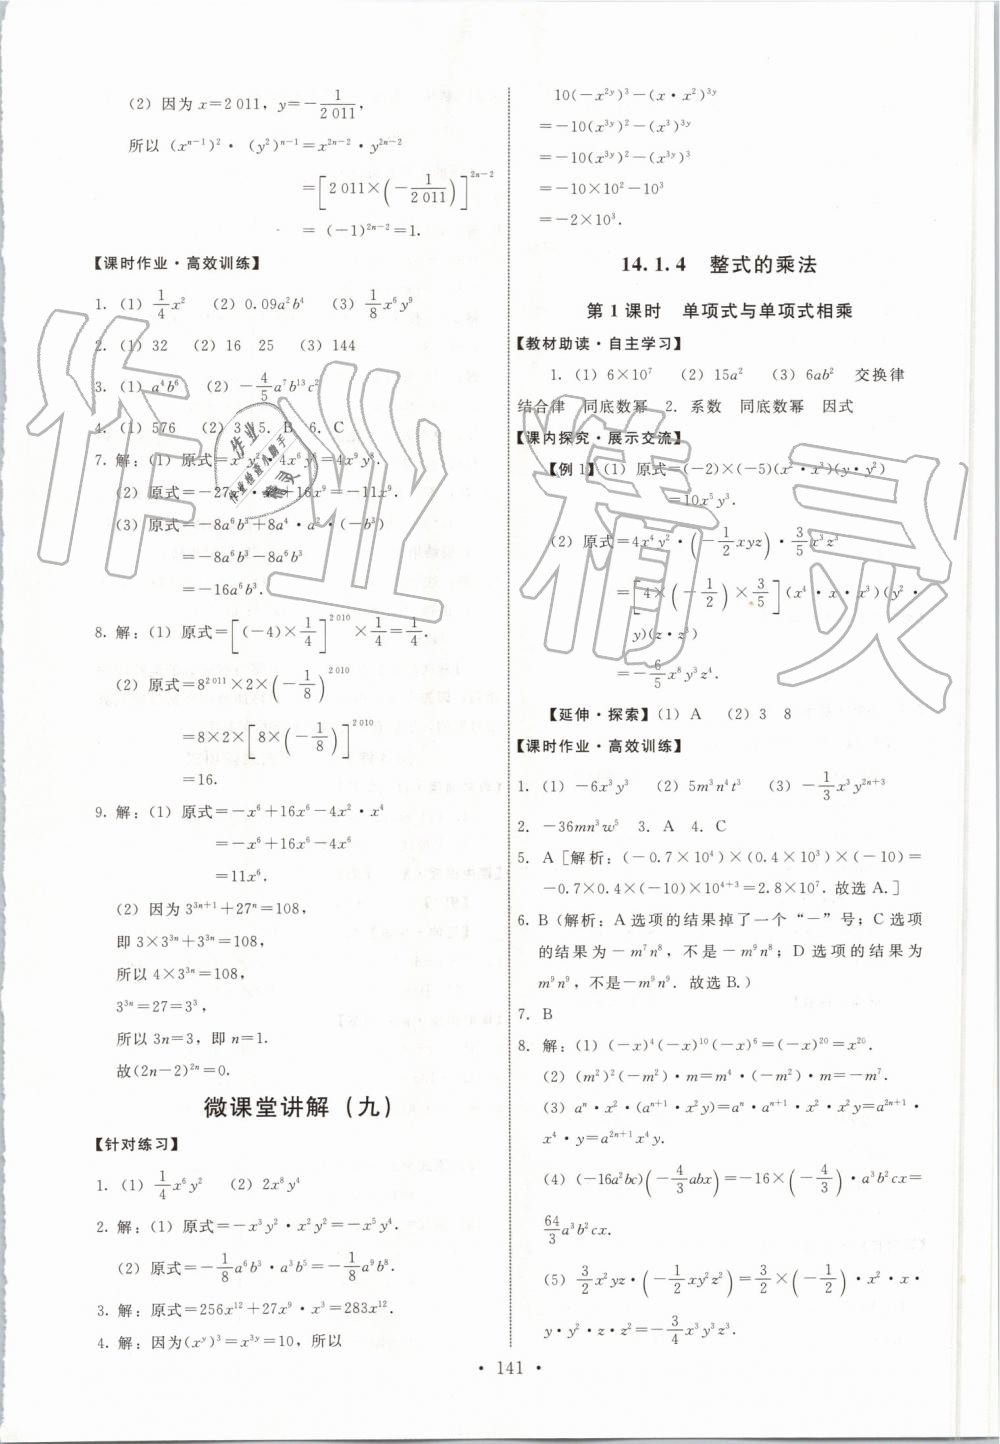 (2) 因为 x=2 011, y=-1/2 011,
所以 (x^{n-1})^2 · (y^2)^{n-1}=x^{2n-2} · y^{2n-2}
=[2 011×(-1/2 011)]^{2n-2}
= (-1)^{2n-2}=1.
【课时作业·高效训练】
1. (1) 1/4 x^2 (2) 0.09a^2b^4 (3) 1/8 x^6y^9
2. (1) 32 (2) 16 25 (3) 144
3. (1) a^4b^6 (2) -4/5 a^7b^{13}c^2
4. (1) 576 (2) 3 5. B 6. C
7. 解: (1) 原式=x^4y^2 4x^6y^6=4x^9y^8.
(2) 原式=-27 +16x^9=-11x^9.
(3) 原式=-8a^6b^3+8a^4 · a^2 · (-b^3)
=-8a^6b^3-8a^6b^3
=-16a^6b^3.
8. 解: (1) 原式=[(-4)×1/4]^{2 010}×1/4=1/4.
(2) 原式=8^{2 011}×2×(-1/8)^{2 010}
=8×2×[8×(-1/8)]^{2 010}
=16.
9. 解: (1) 原式=-x^6+16x^6-4x^2 · x^4
=-x^6+16x^6-4x^6
=11x^6.
(2) 因为 3^{3n+1}+27^n=108,
即 3×3^{3n}+3^{3n}=108,
所以 4×3^{3n}=108,
3^{3n}=27=3^3,
所以 3n=3, 即 n=1.
故(2n-2)^{2n}=0.
微课堂讲解 (九)
【针对练习】
1. (1) 1/4 x^6y^2 (2) 2x^8y^4
2. 解: (1) 原式=-x^3y^2 · x^2y^2=-x^5y^4.
(2) 原式=-1/8 a^6b^3 · a^3b^5=-1/8 a^9b^8.
3. 解: 原式=256x^{12}+27x^9 · x^3=283x^{12}.
4. 解: 因为(x^y)^3=x^{3y}=10, 所以
10(-x^{2y})^3-(x · x^2)^{3y}
=-10(x^{3y})^2-(x^3)^{3y}
=-10(x^{3y})^2-(x^{3y})^3
=-10×10^2-10^3
=-2×10^3.
14.1.4 整式的乘法
第 1 课时 单项式与单项式相乘
【教材助读·自主学习】
1. (1) 6×10^7 (2) 15a^2 (3) 6ab^2 交换律
结合律 同底数幂 2. 系数 同底数幂 因式
【课内探究·展示交流】
【例 1】(1) 原式=(-2)×(-5)(x^2 · x^3)(y · y^2)
=10x^5y^3.
(2) 原式=4x^4y^2 · (-1/2 xyz) · 3/5 x^3z^3
=[4×(-1/2)×3/5](x^4 · x · x^3)(y^2 ·
y)(z · z^3)
=-6/5 x^8y^3z^4.
【延伸·探索】(1) A (2) 3 8
【课时作业·高效训练】
1. (1) -6x^3y^3 (2) 5m^3n^4t^3 (3) -1/3 x^3y^{2n+3}
2. -36mn^3w^5 3. A 4. C
5. A [解析: (-0.7×10^4)×(0.4×10^3)×(-10)=
-0.7×0.4×(-10)×10^{4+3}=2.8×10^7. 故选 A.]
6. B (解析: A 选项的结果掉了一个“-”号; C 选项
的结果为-m^7n^8, 不是-m^9n^8; D 选项的结果为
m^9n^9, 不是-m^9n^9. 故选 B.)
7. B
8. 解: (1) (-x)^4(-x)^{10}(-x)^6=(-x)^{20}=x^{20}.
(2) (m^2)^2(-m^2) · m=m^4 · (-m^2) · m=-m^7.
(3) a^n · x^2 · (a^{n+1} · x^2y)=a^n · a^{n+1} · x^2 · x^2y=a^{2n+1} ·
x^4 · y=a^{2n+1}x^4y.
(4) (-16a^2bc)(-4/3 abx)=-16×(-4/3) · a^3b^2cx=
64/3 a^3b^2cx.
(5) 3/2 x^2yz · (-1/2 xy^2z^2)=3/2×(-1/2) · x^2 · x ·
y · y^2 · z · z^2=-3/4 x^3y^3z^3.
· 141 ·
作业精灵